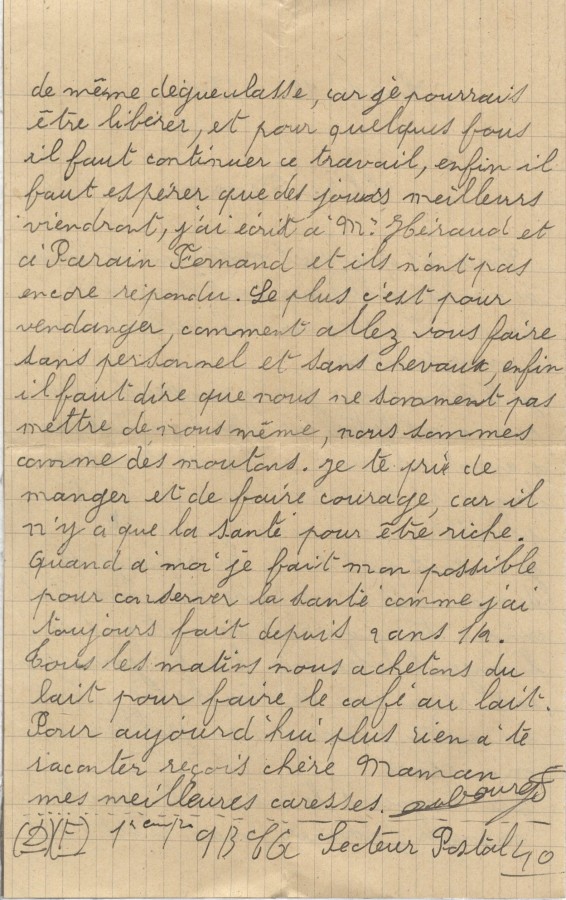 de même dégueulasse, car je pourrais
être libérer, et pour quelques fous
il faut continuer ce travail, enfin il
faut espérer que des jours meilleurs
viendront, j'ai écrit à Mr Héraud et
à Parain Fernand et ils n'ont pas
encore répondu. Le plus c'est pour
vendanger, comment allez vous faire
sans personnel et sans chevaux, enfin
il faut dire que nous ne pas
mettre de nous même, nous sommes
comme des moutons. Je te prie de
manger et de faire courage, car il
n'y à que la santé pour être riche.
Quand à moi je fait mon possible
pour conserver la santé comme j'ai
toujours fait depuis 2 ans 1/2.
Tous les matins nous achetons du
lait pour faire le café au lait.
Pour aujourd'hui plus rien à te
raconter reçois chère Maman
mes meilleures caresses.
(D)(F) 1re Secteur Postal 40